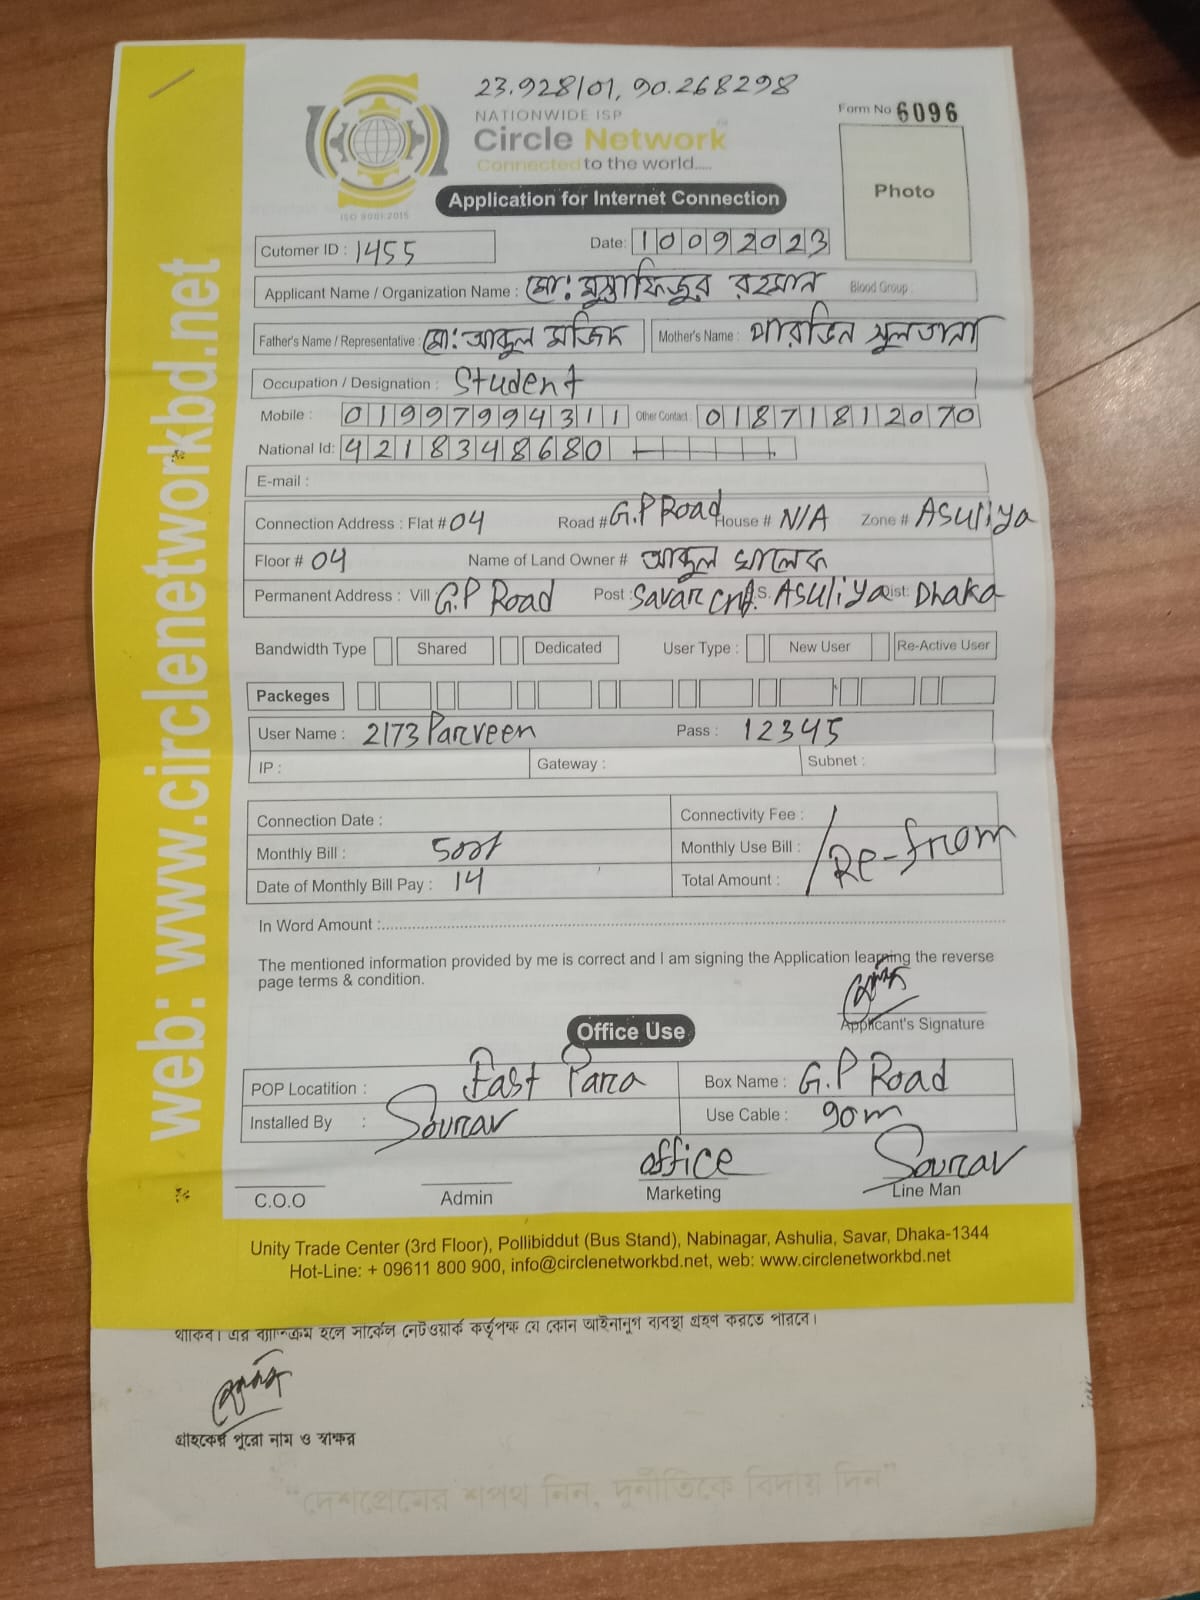 23.928101, 90.268298
NATIONWIDE ISP
Circle Network
Connected to the world.....
ISO 9001:2015
Form No 6096
Photo
Application for Internet Connection
Cutomer ID : 1455 Date: 10092023
Applicant Name / Organization Name : মো: মুস্তাফিজুর রহমান Blood Group :
Father's Name / Representative : মো: আব্দুল মজিদ Mother's Name : পারভিন সুলতানা
Occupation / Designation : Student
Mobile : 01997994311 Other Contact : 01871812070
National Id: 4218348680
E-mail :
Connection Address : Flat # 04 Road # G.P Road House # N/A Zone # Asuliya
Floor # 04 Name of Land Owner # আব্দুল খালেক
Permanent Address : Vill G.P Road Post : Savar Cnt .S. Asuliya ist: Dhaka
Bandwidth Type Shared Dedicated User Type : New User Re-Active User
Packeges
User Name : 2173 Parveen Pass : 12345
IP : Gateway : Subnet :
Connection Date : Connectivity Fee :
Monthly Bill : 500/ Monthly Use Bill : Re-from
Date of Monthly Bill Pay : 14 Total Amount :
In Word Amount :
The mentioned information provided by me is correct and I am signing the Application learning the reverse
page terms & condition.
Applicant's Signature
Office Use
POP Locatition : East Para Box Name : G.P Road
Installed By : Sourav Use Cable : 90m
office Sourav
C.O.O Admin Marketing Line Man
Unity Trade Center (3rd Floor), Pollibiddut (Bus Stand), Nabinagar, Ashulia, Savar, Dhaka-1344
Hot-Line: + 09611 800 900, info@circlenetworkbd.net, web: www.circlenetworkbd.net
web: www.circlenetworkbd.net
থাকিব। এর ব্যতিক্রম হলে সার্কেল নেটওয়ার্ক কর্তৃপক্ষ যে কোন আইনানুগ ব্যবস্থা গ্রহণ করতে পারবে।
গ্রাহকের পুরো নাম ও স্বাক্ষর
"দেশপ্রেমের শপথ নিন, দুর্নীতিকে বিদায় দিন"